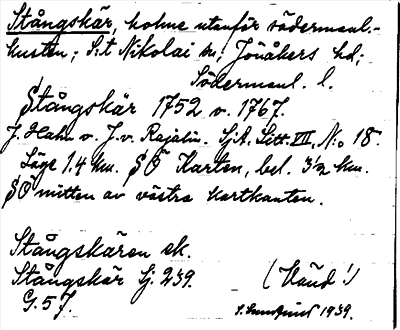 Stångskär, holme utanför södermanl.-
kusten; S:t Nikolai sn; Jönåkers hd;
Södermanl. l.
Stångskär 1752 v. 1767.
J. Hahn v. J. v. Rajalin. Sjk. Litt. VII, N:o 18.
Läge 1.4 km. SÖ Karten, bel. 3½ km.
SÖ mitten av västra kartkanten.
Stångskären ek.
Stångskär Sj. 239.
(Vänd!)
G. 57.
1939.